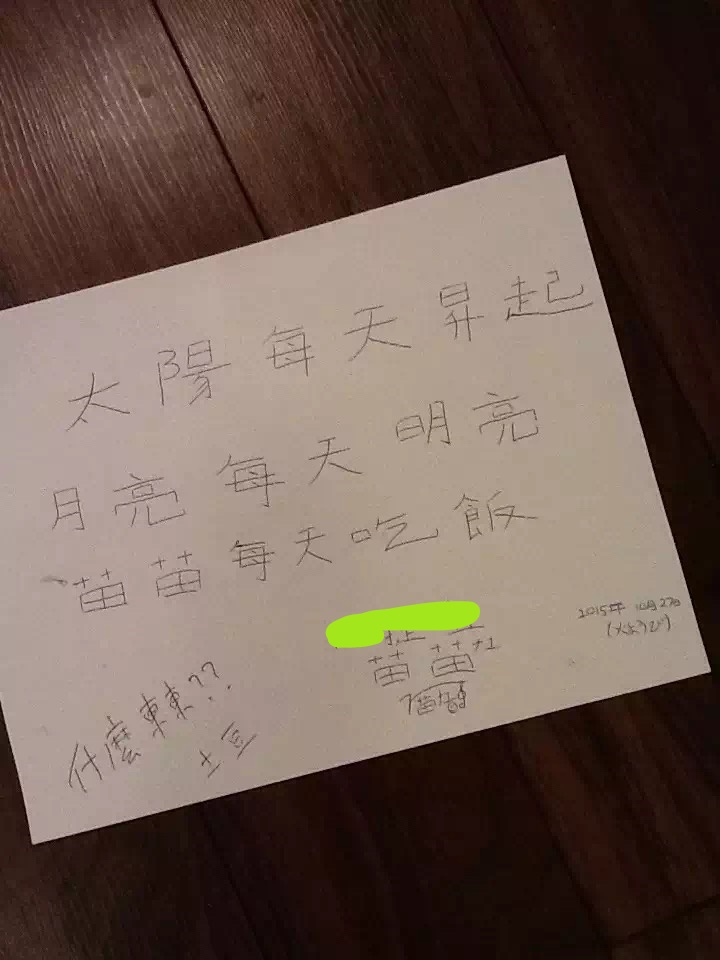 太陽每天昇起
月亮每天明亮
苗苗每天吃飯
2015年 10月27日
(火ようび)
苗苗+1
什麼東東??
土豆